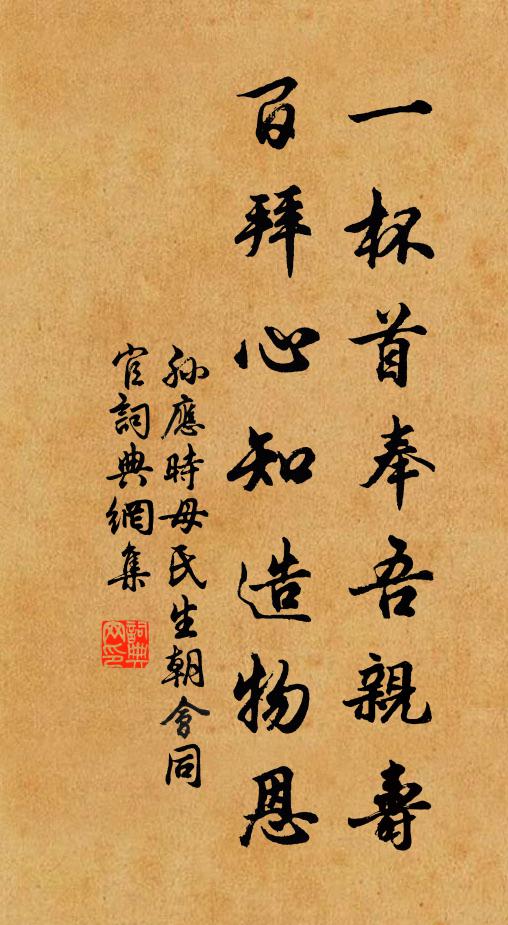 一杯首奉吾親壽
百拜心知造物恩
孫應時母氏生朝會同
官詞典網集
詞典
网印